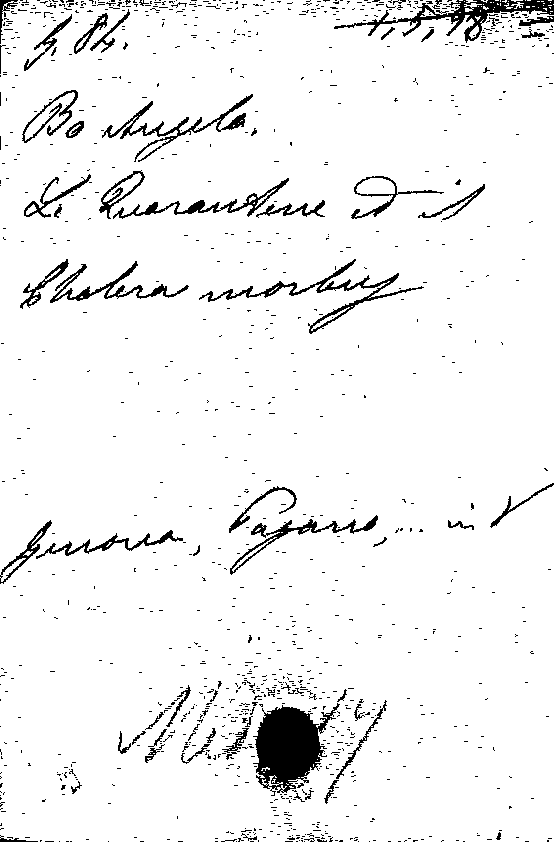 G. 84. 1, 5, 98
Bo Angelo.
Le Quarantene ed il
Cholera morbus
Genova, Pagano, ... in 8